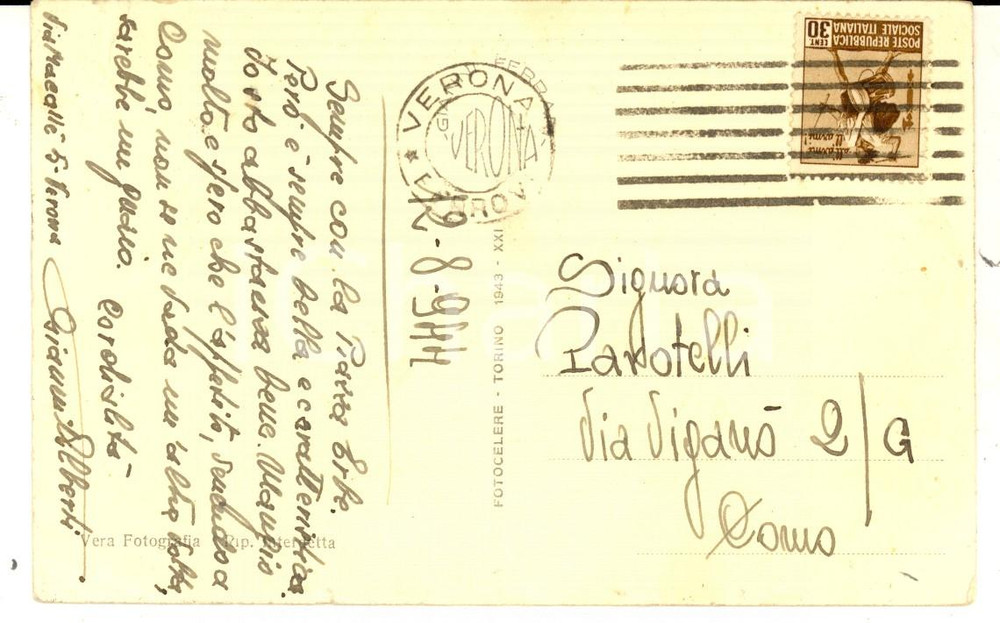 12-8-944
Sempre con la Piazza Erbe.
Però è sempre bella e caratteristica.
Io sto abbastanza bene. Mangio
molto e spero che l'appetito, venendo a
Como, non se ne vada un'altra volta,
sarebbe un guaio. Cordialità
Gianni Alberti
Via Macallè 5 Verona
VERONA
VERONA
FERRARA
POSTE REPUBBLICA
SOCIALE ITALIANA
CENT 30
all'armi
all'armi
Signora
Pavotelli
Via Viganò 2/G
Como
FOTOCELERE - TORINO 1943 - XXI
Vera Fotografia Rip. Interdetta